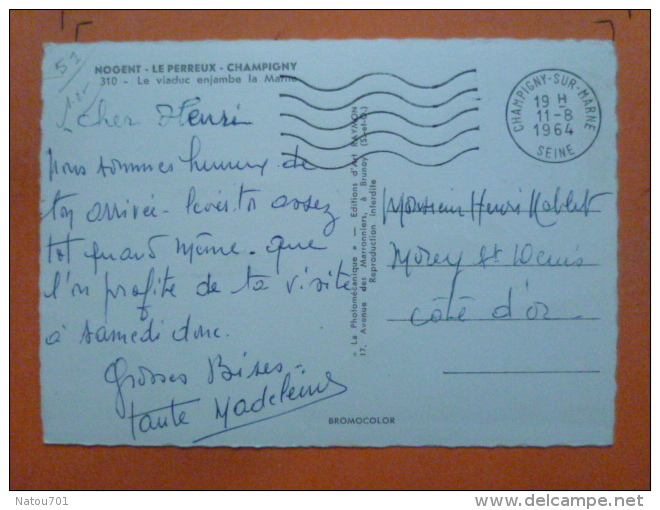 NOGENT - LE PERREUX - CHAMPIGNY
310 - Le viaduc enjambe la Marne
53
Cher Henri
Nous sommes heureux de
ton arrivée - assez
tot quand même - que
l'on profite de ta visite
à samedi donc.
Grosses Bises -
tante Madeleine
« La Photomécanique » — Editions d'Art RAYMON
17, Avenue des Marronniers, à Brunoy (S.-et-O.)
Reproduction interdite
CHAMPIGNY-SUR-MARNE
19 H
11-8
1964
SEINE
Monsieur Henri
Morey St Denis
Côte d'or
BROMOCOLOR
Natou701
delcampe.net